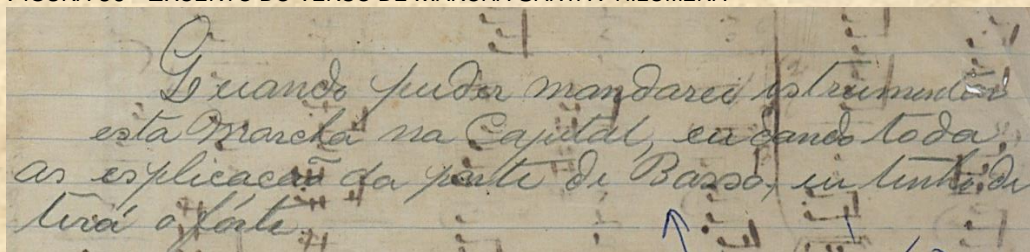 Quando puder mandarei istrumentar
esta Marcha na Capital, eu dando toda,
as esplicacão da parte de Basso, eu tenho de
tirá o forte.